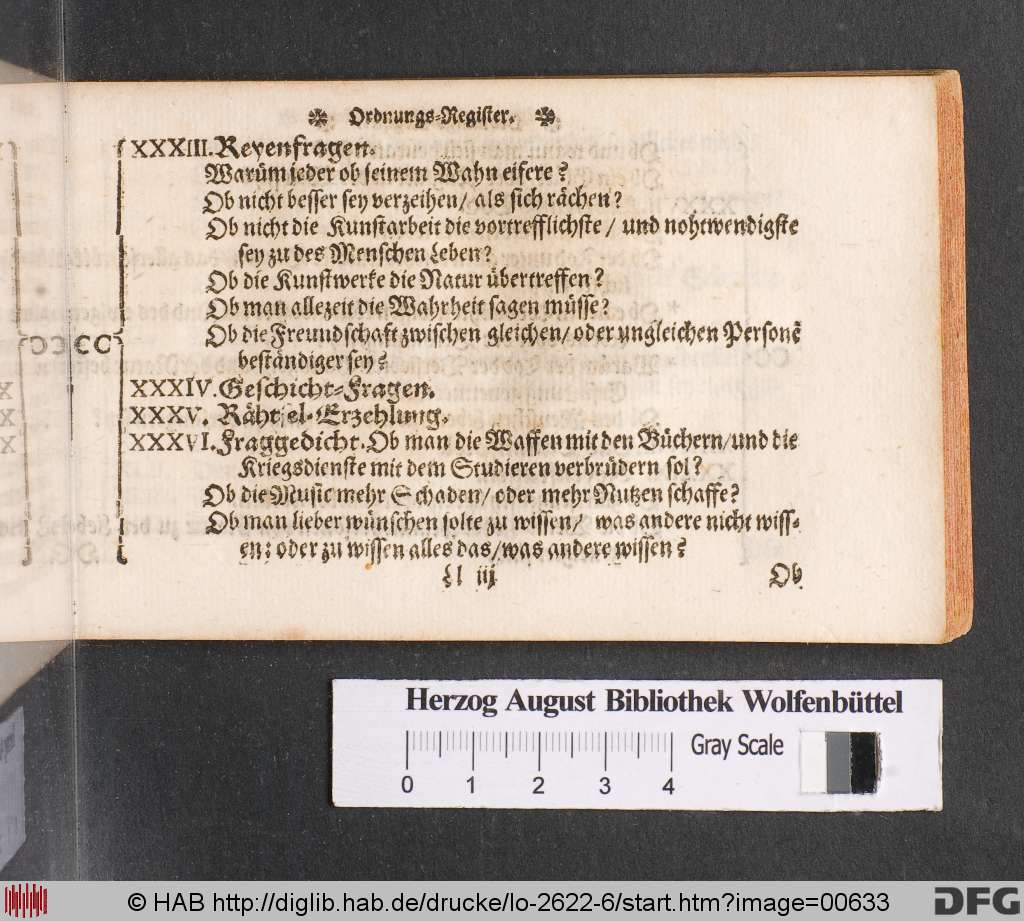 Ordnungs-Register.
XXXIII. Reyenfragen.
Warüm jeder ob seinem Wahn eifere?
Ob nicht besser sey verzeihen/ als sich rächen?
Ob nicht die Kunstarbeit die vortrefflichste/ und nohtwendigste
sey zu des Menschen Leben?
Ob die Kunstwerke die Natur übertreffen?
Ob man allezeit die Wahrheit sagen müsse?
Ob die Freundschaft zwischen gleichen/ oder ungleichen Personẽ
beständiger sey?
XXXIV. Geschicht-Fragen.
XXXV. Rähtsel-Erzehlung.
XXXVI. Fraggedicht. Ob man die Waffen mit den Büchern/und die
Kriegsdienste mit dem Studieren verbrüdern sol?
Ob die Music mehr Schaden/ oder mehr Nutzen schaffe?
Ob man lieber wünschen solte zu wissen/ was andere nicht wiss-
en: oder zu wissen alles das/was andere wissen?
Ll iij Ob
Herzog August Bibliothek Wolfenbüttel
Gray Scale
0 1 2 3 4
© HAB http://diglib.hab.de/drucke/lo-2622-6/start.htm?image=00633
DFG